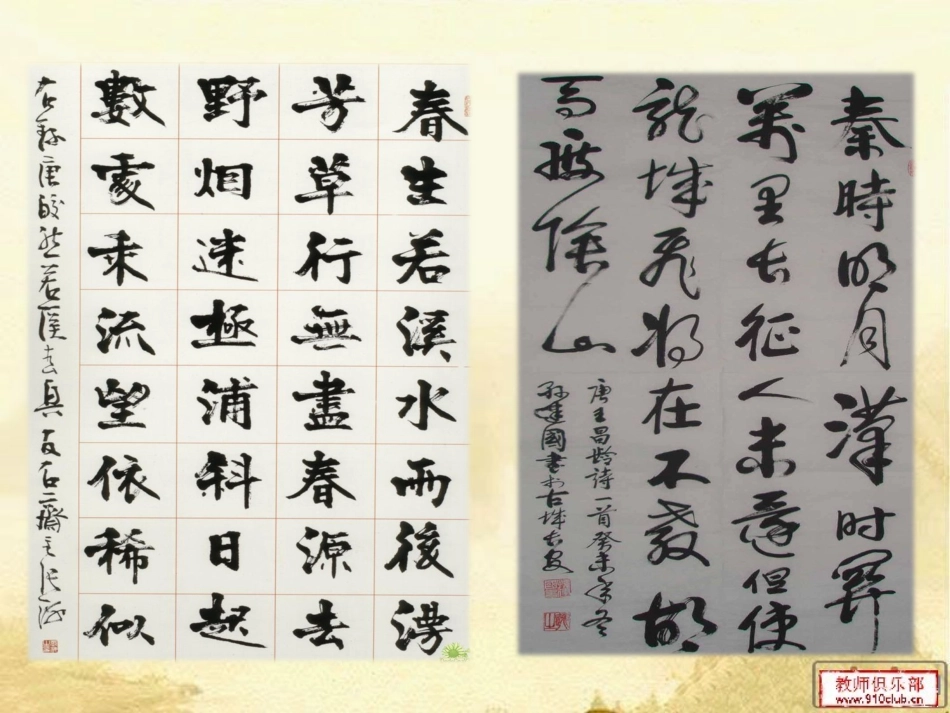 春生若溪水雨後漫
芳草行無盡春源去
野烟迷極浦斜日起
數處乘流望依稀似
唐皎然若溪春興
秦時明月漢时關
萬里长征人未還但使
龍城飛将在不教胡
馬度陰山
唐王昌齡詩一首癸未年冬
孫建國書於古城长安
教师俱乐部
www.910club.cn